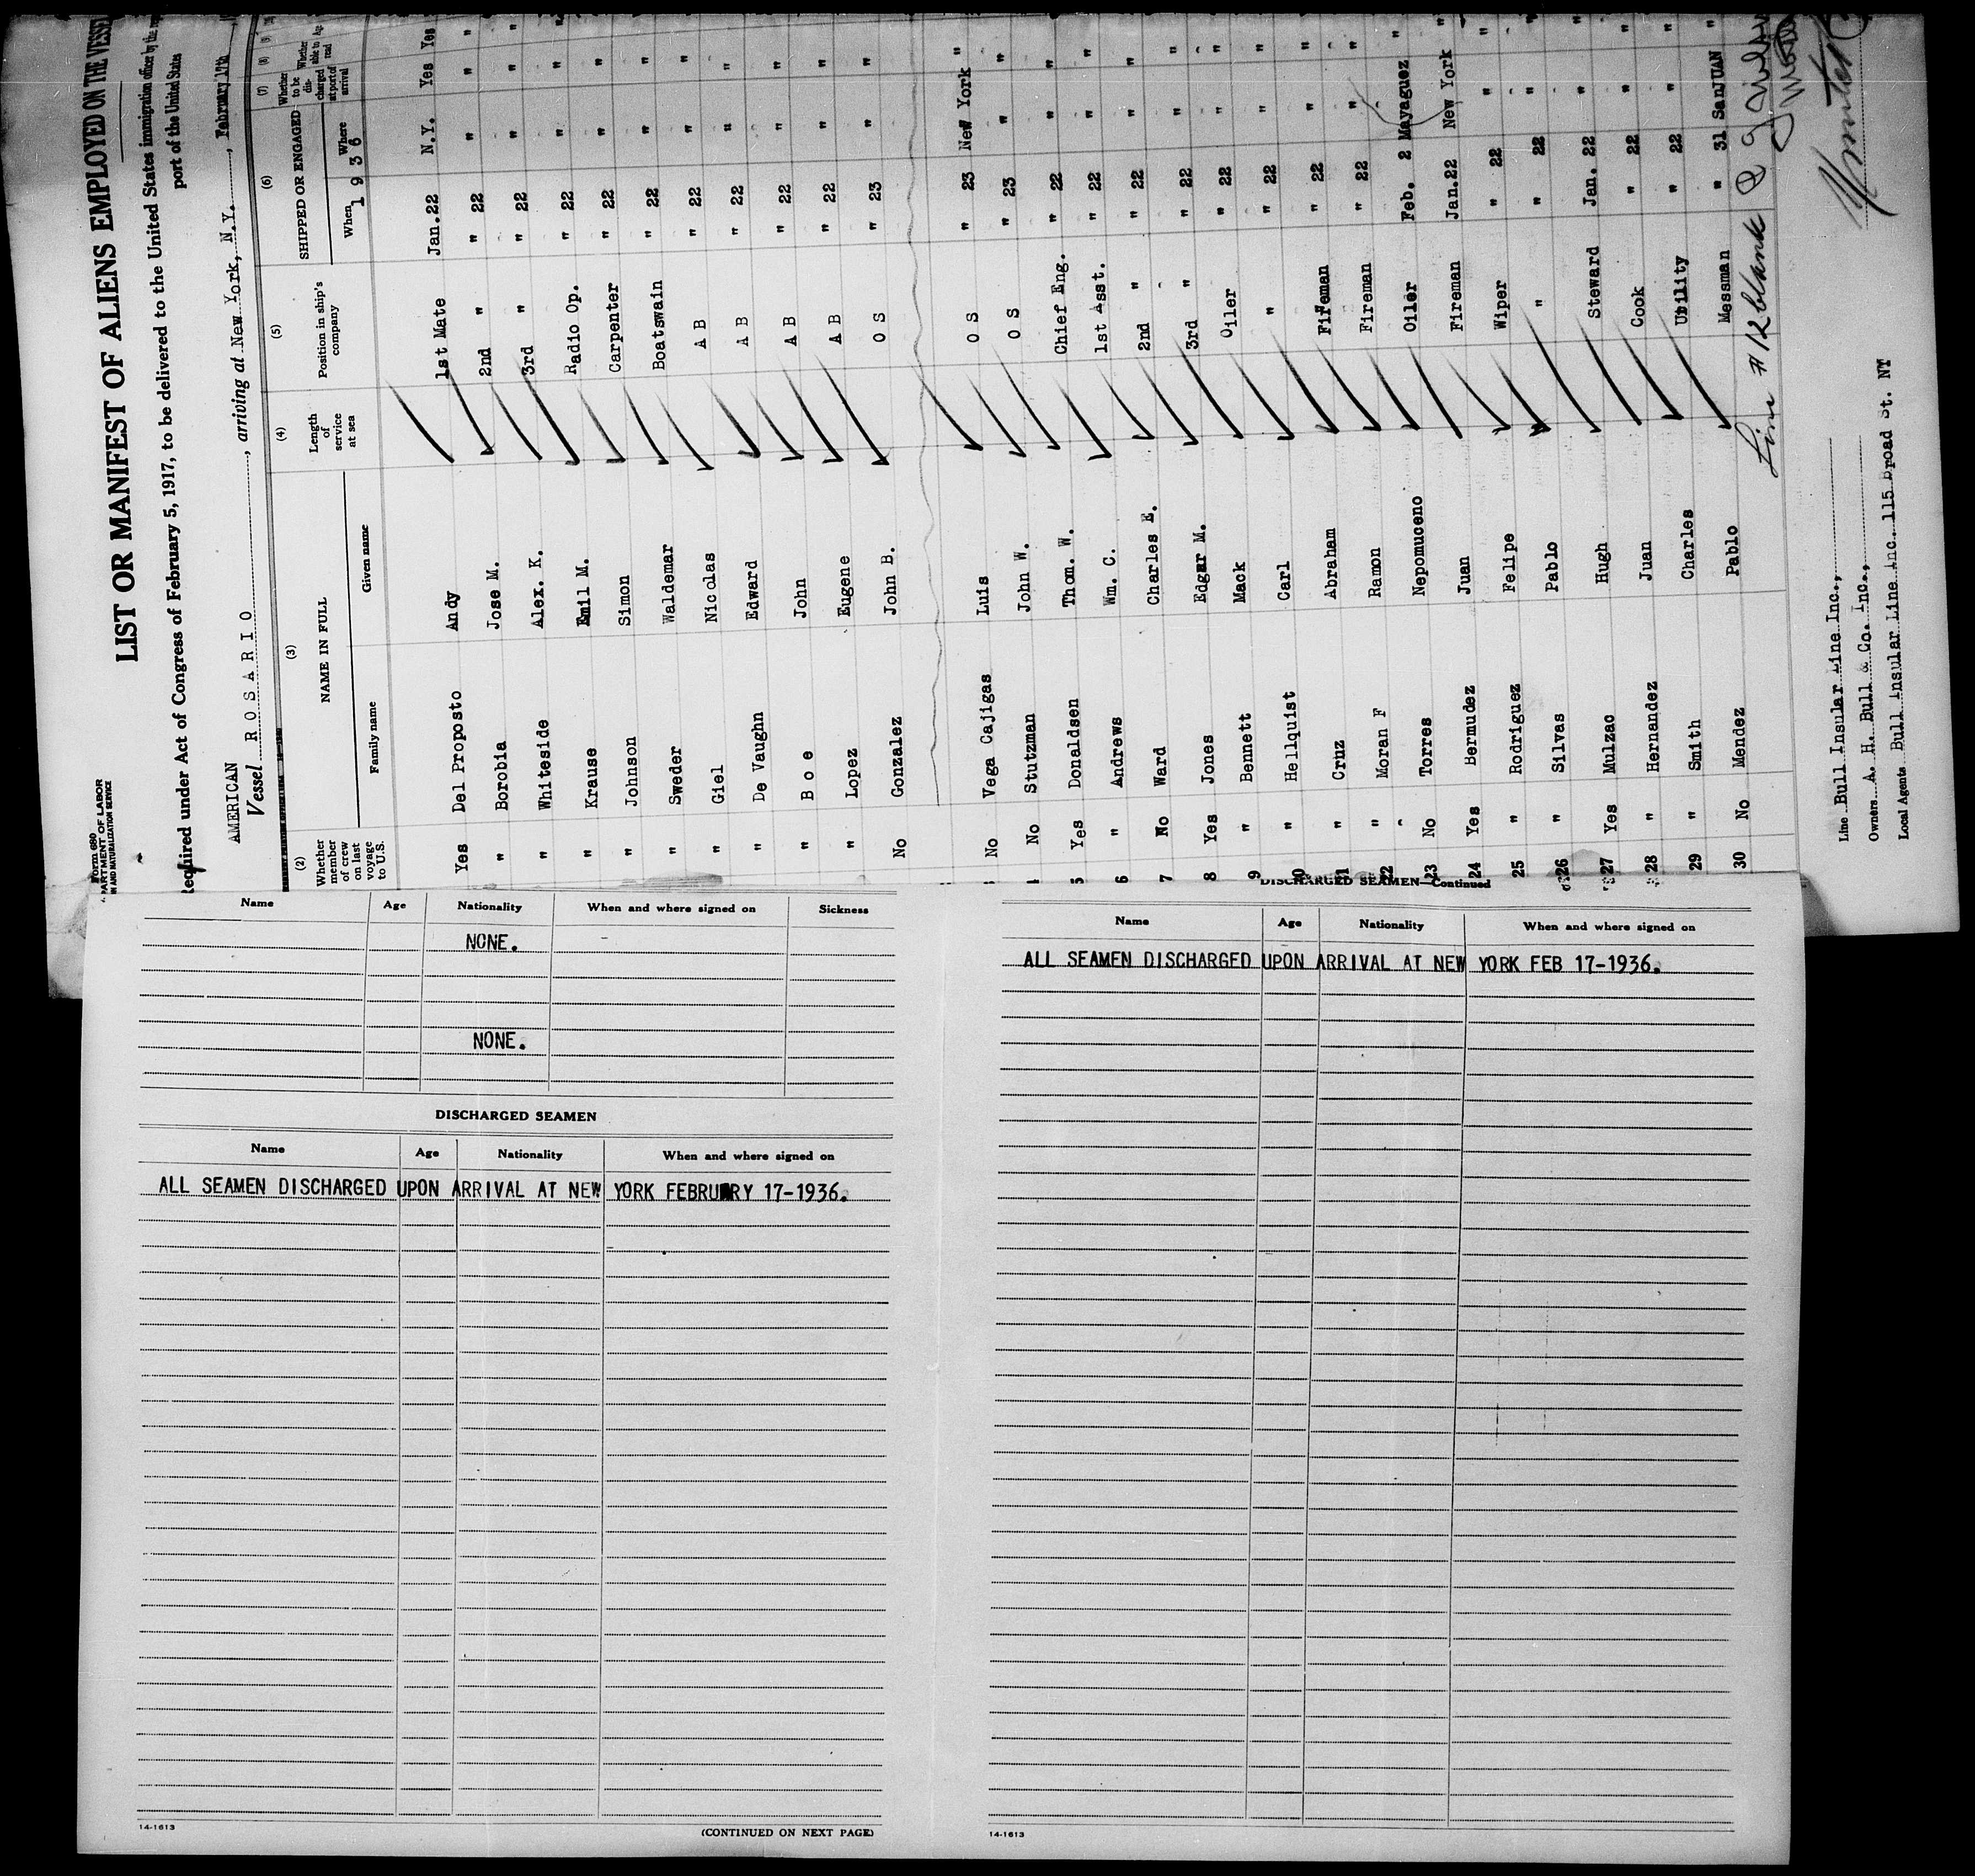 Form 680
DEPARTMENT OF LABOR
LIST OR MANIFEST OF ALIENS EMPLOYED ON THE VESSEL
required under Act of Congress of February 5, 1917, to be delivered to the United States immigration officer by the
port of the United States
AMERICAN
Vessel ROSARIO, arriving at New York, N.Y., February 17th
(2) Whether member of crew on last voyage to U.S. (3) NAME IN FULL Family name Given name (4) Length of service at sea (5) Position in ship's company (6) SHIPPED OR ENGAGED When Where 1936 (7) Whether to be discharged at port of arrival (8) Whether able to read (9)
Yes Del Proposto Andy 1st Mate Jan. 22 N.Y. Yes Yes
" Borobia Jose M. 2nd " " 22 " " "
" Whiteside Alex. K. 3rd " " 22 " " "
" Krause Emil M. Radio Op. " 22 " " "
" Johnson Simon Carpenter " 22 " " "
" Sweder Waldemar Boatswain " 22 " " "
" Giel Nicolas A B " 22 " " "
" De Vaughn Edward A B " 22 " " "
" Boe John A B " 22 " " "
" Lopez Eugene A B " 22 " " "
No Gonzalez John B. O S " 23 " " "
No Vega Cajigas Luis O S " 23 New York "
4 No Stutzman John W. O S " 23 " "
5 Yes Donaldsen Thom. W. Chief Eng. " 22 " "
6 " Andrews Wm. C. 1st Asst. " 22 " "
7 No Ward Charles E. 2nd " " 22 " "
8 Yes Jones Edgar M. 3rd " " 22 " "
9 " Bennett Mack Oiler " 22 " "
10 " Hellquist Carl " " 22 " "
11 " Cruz Abraham Fireman " 22 " "
22 " Moran F Ramon Fireman " 22 " "
23 No Torres Nepomuceno Oiler Feb. 2 Mayaguez "
24 Yes Bermudez Juan Fireman Jan. 22 New York "
25 " Rodriguez Felipe Wiper " 22 " "
26 " Silvas Pablo " " 22 " "
27 Yes Mulzac Hugh Steward Jan. 22 " "
28 " Hernandez Juan Cook " 22 " "
29 " Smith Charles Utility " 22 " "
30 No Mendez Pablo Messman " 31 SanJUAN "
Line #12 blank
Line Bull Insular Line Inc.,
Owners A. H. Bull & Co. Inc.,
Local Agents Bull Insular Line Inc. 115 Broad St. NY
Name Age Nationality When and where signed on Sickness
NONE.
NONE.
DISCHARGED SEAMEN
Name Age Nationality When and where signed on
ALL SEAMEN DISCHARGED UPON ARRIVAL AT NEW YORK FEBRUARY 17-1936.
14-1613
(CONTINUED ON NEXT PAGE)
DISCHARGED SEAMEN—Continued
Name Age Nationality When and where signed on
ALL SEAMEN DISCHARGED UPON ARRIVAL AT NEW YORK FEB 17-1936.
14-1613